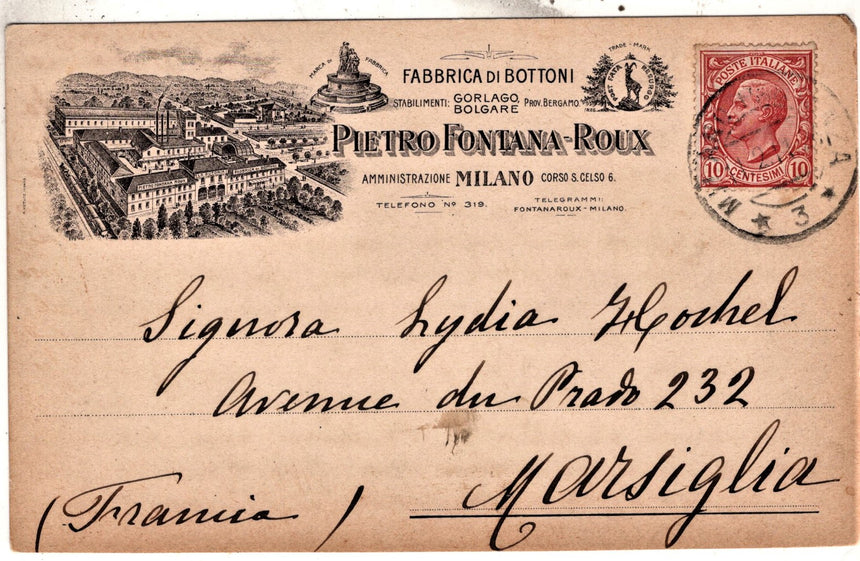 MARCA DI FABBRICA
TRADE-MARK
FABBRICA DI BOTTONI
STABILIMENTI: GORLAGO BOLGARE PROV. BERGAMO.
PIETRO FONTANA-ROUX
AMMINISTRAZIONE MILANO CORSO S. CELSO 6.
TELEFONO Nº 319.
TELEGRAMMI:
FONTANAROUX-MILANO.
POSTE ITALIANE
10 CENTESIMI 10
3
Signora Lydia Hochel
Avenue du Prado 232
Marsiglia
(Francia)